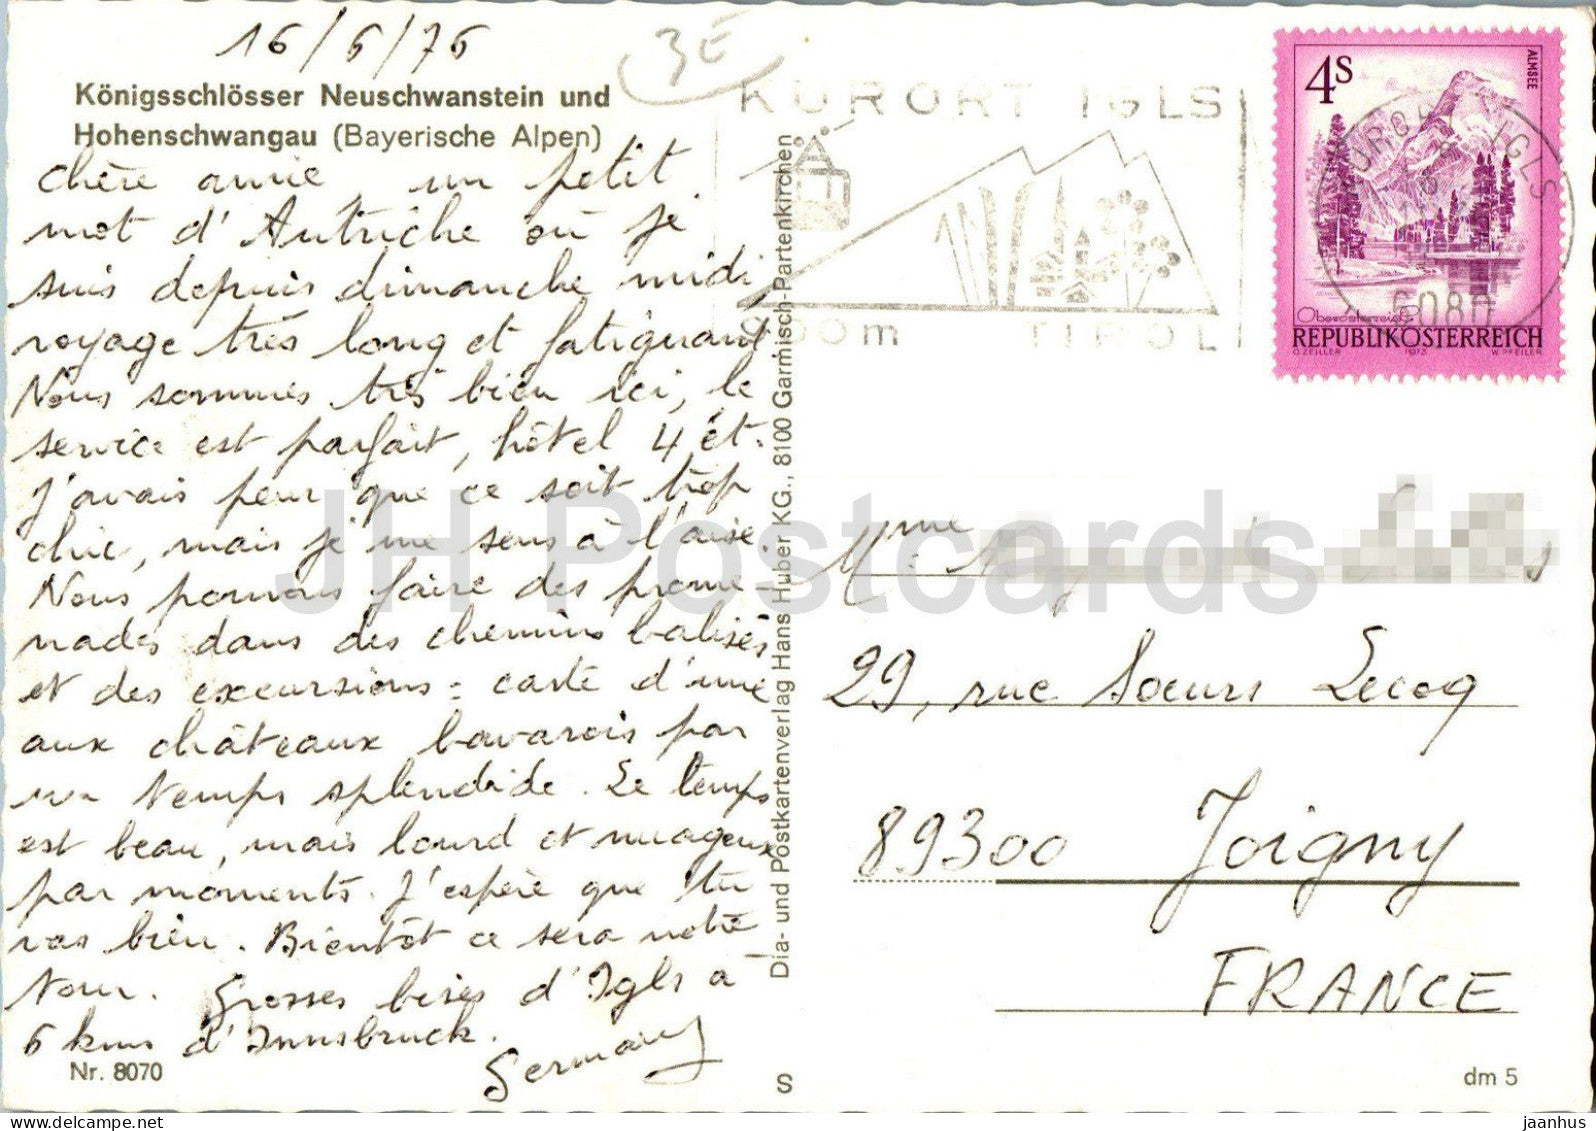 16/6/76
3E
Königsschlösser Neuschwanstein und
Hohenschwangau (Bayerische Alpen)
chère amie, un petit
mot d'Autriche où je
suis depuis dimanche midi,
voyage très long et fatiguant
Nous sommes très bien ici, le
service est parfait, hôtel 4 ét.
J'avais peur que ce soit trop
chic, mais je me sens à l'aise.
Nous pouvons faire des prome-
nades dans des chemins balisés
et des excursions = carte d'une
aux châteaux bavarois par
un temps splendide. Le temps
est beau, mais lourd et nuageux
par moments. J'espère que tu
vas bien. Bientôt ce sera notre
tour. Grosses bises d'Igls à
6 kms d'Innsbruck.
Germany
Nr. 8070
Dia- und Postkartenverlag Hans Huber KG., 8100 Garmisch-Partenkirchen
S
KURORT IGLS
900m TIROL
4S
ALMSEE
Oberösterreich
REPUBLIK ÖSTERREICH
O. ZEILLER 1973 W. PFEILER
IGLS
6080
Mme
29, rue Soeurs Lecoq
89300 Joigny
FRANCE
dm 5
JH Postcards
jaanhus